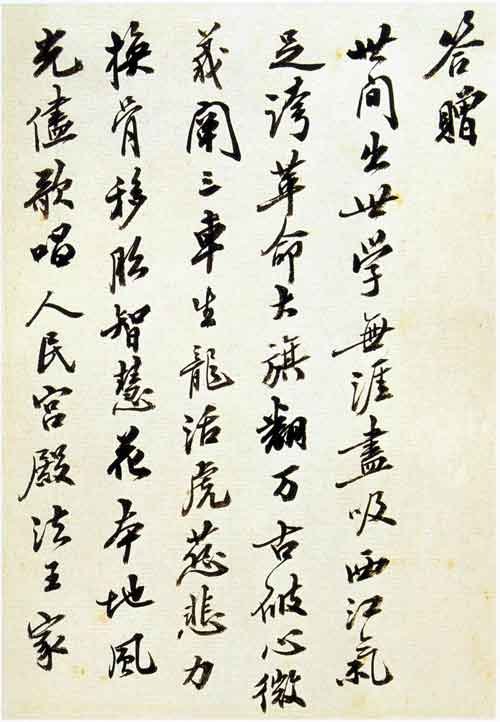 答贈
世间出世学無涯盡吸西江氣
足誇革命大旗翻万古破心微
義阐三車生龍活虎慈悲力
換骨移胎智慧花本地風
光儘歌唱人民宮殿法王家